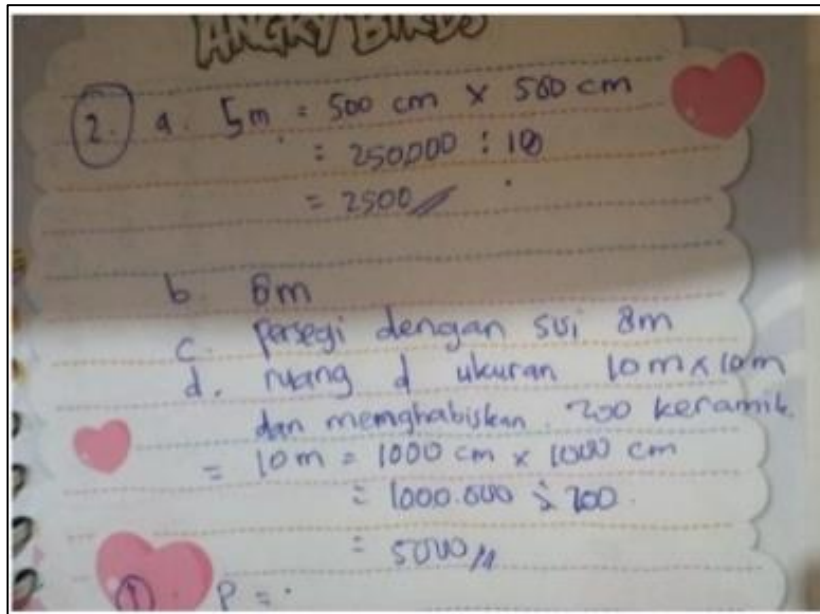 ANGRY BIRDS
2. a. 5m = 500 cm × 500 cm
= 250.000 : 10
= 2500 //
b. 8m
c. Persegi dengan sisi 8m
d. ruang d ukuran 10m × 10m
dan memghabiskan 200 keramik.
= 10m = 1000 cm × 1000 cm
= 1000.000 : 200.
= 5000 //
1 P = .